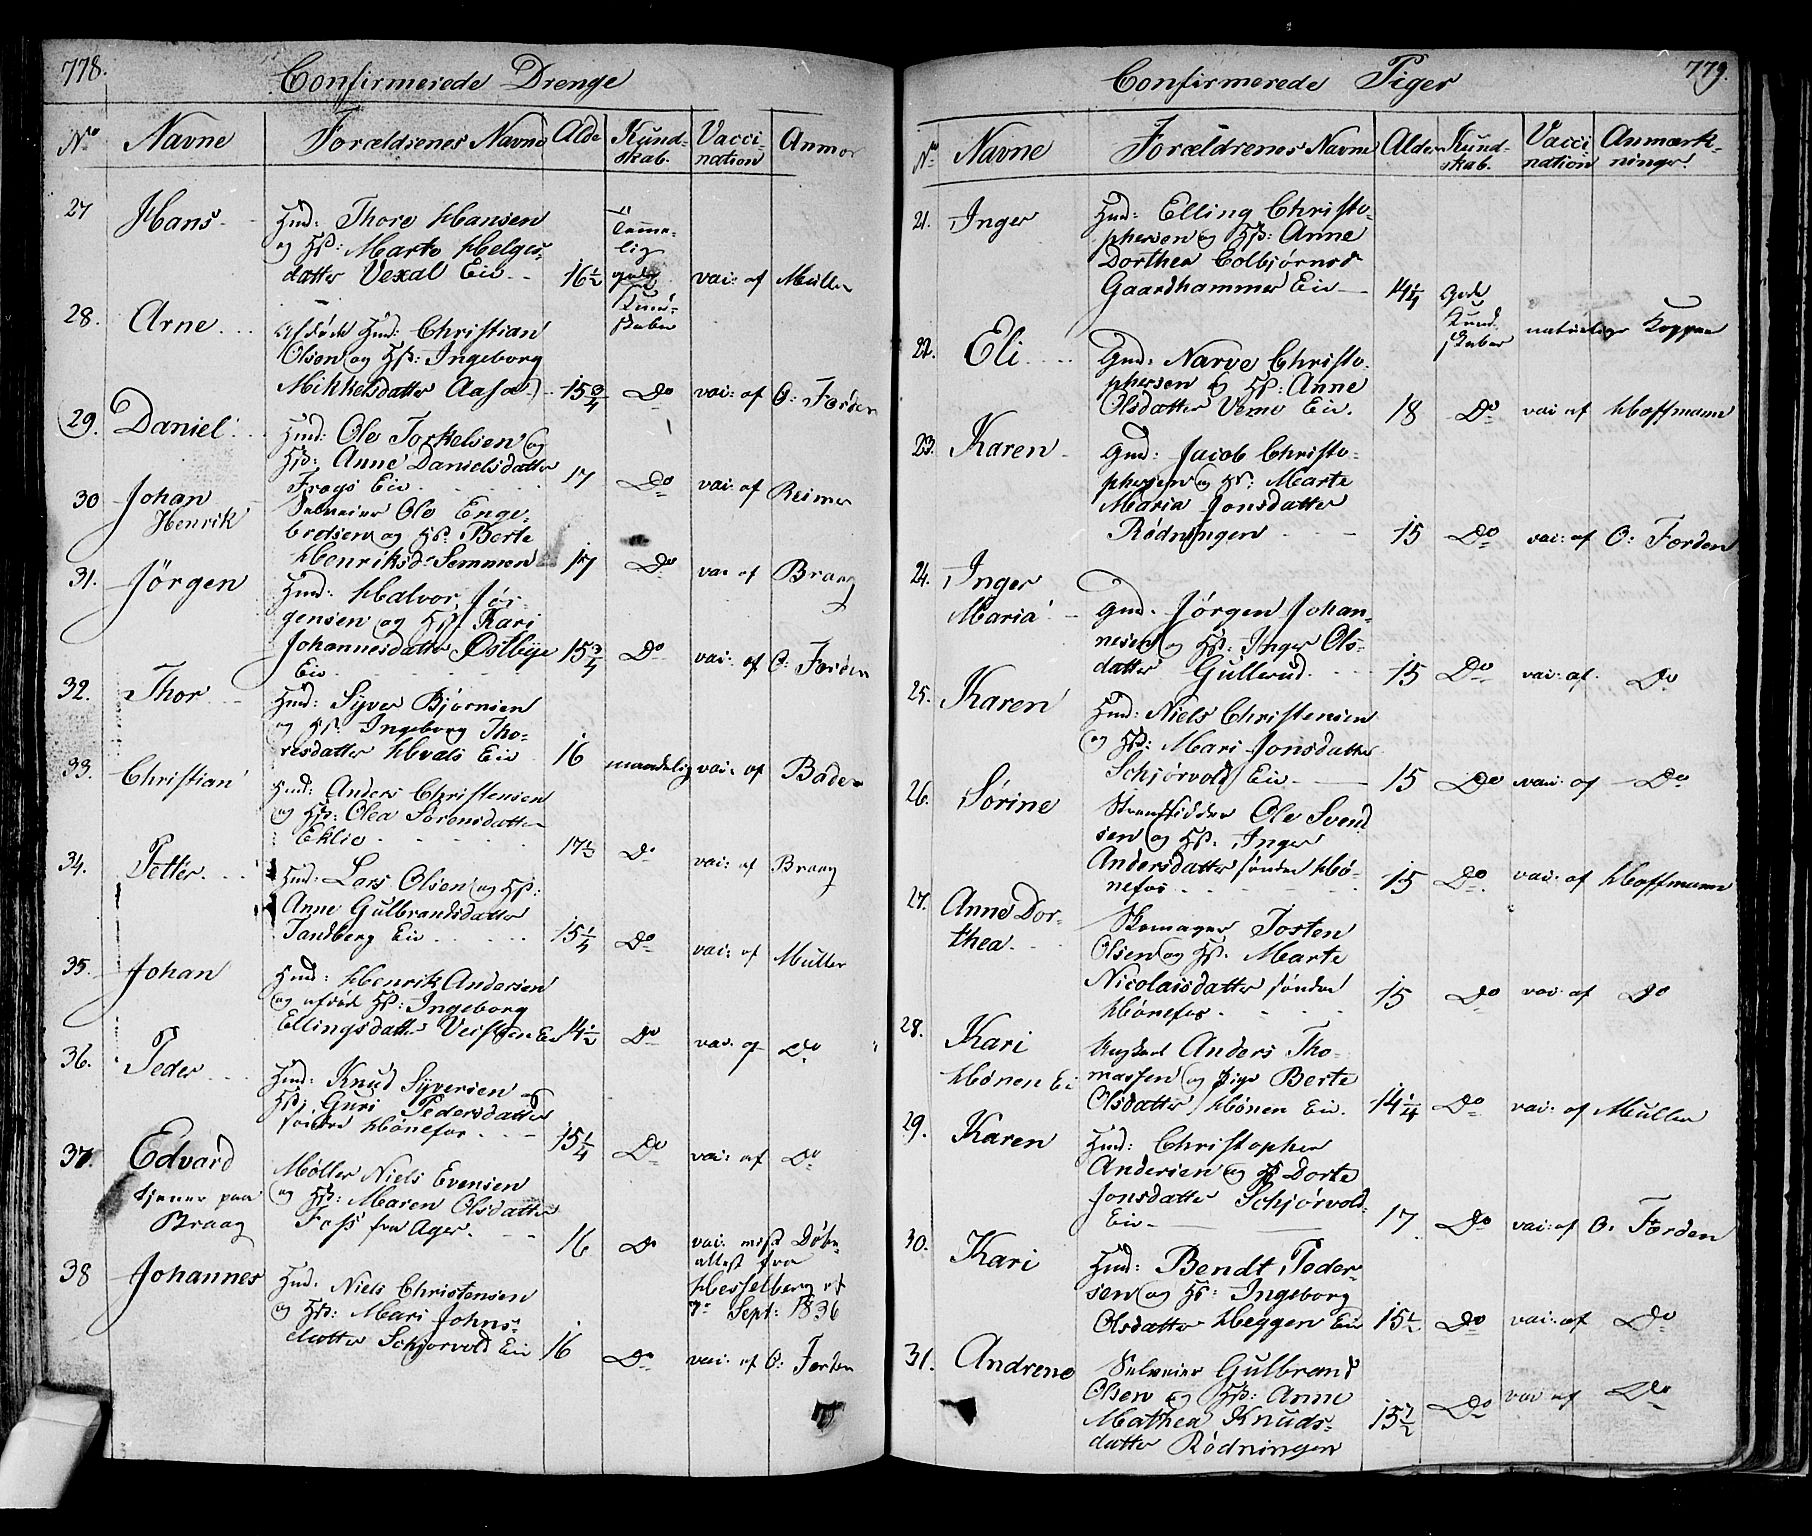 778.
Confirmerede Drenge
No
Navne
Forældrenes Navne
Alde
Kund-
skab.
Vacci-
nation
Anmær
27
Hans
Hmd: Thore Hansen
og Hst: Marte Helges-
datter Vexal Eie
16½
Temme-
lig
gode
Kund-
skaber
vac: af
Muller
28.
Arne
Afdøde Hmd: Christian
Olsen og Hst: Ingeborg
Mikkelsdatter Aasa
15¾
Do
vac: af
O:Førden
29.
Daniel
Hmd: Ole Torkelsen og
Hst: Anne Danielsdatter
Frogs Eie
17
Do
vac: af
Reimer
30
Johan
Henrik
Selveier Ole Enge-
bretsen og Hst. Berte
Henriksd. Semmen
17
Do
vac af
Braag
31.
Jörgen
Hmd: Halvor Jör-
gensen og Hst. Kari
Johannesdatter Østbye
Eie
15¾
Do
vac: af
O: Førden
32.
Thor
Hmd: Syver Bjørnsen
og Hst. Ingeborg Tho-
resdatter Hvals Eie
16
maadelig
vac: af
Bader
33.
Christian
Hmd: Anders Christensen
og Hst: Olea Sørensdatter
Eklie
17½
Do
vac: af
Braag
34.
Petter
Hmd: Lars Olsen og Hst:
Anne Gulbrandsdatter
Tandberg Eie
15¼
Do
vac: af
Muller
35.
Johan
Hmd: Henrik Andersen
og afdød Hst: Ingeborg
Ellingsdatter Vesteren Eie
14½
Do
vac: af
Do
36.
Peder
Hmd: Knud Syversen og
Hst: Guri Pedersdatter
søndre Hönefos
15¼
Do
vac: af
Do
37.
Edvard
tjener paa
Braag
Møller Niels Evensen
og Hst: Maren Olsdatter
Foss fra Ager.
16
Do
vac: mest Døbe-
attest fra
Hesselberg af
7de Sept: 1836
38
Johannes
Hmd: Niels Christensen
og Hst: Mari Johns-
datter Schjørvold Eie
16
Do
vac: af
O: Førden
779.
Confirmerede Piger
No
Navne
Forældrenes Navne
Alder
Kund-
skab.
Vacci-
nation
Anmærk-
ninger.
21.
Inger
Hmd: Elling Christo-
phersen og Hst: Anne
Dorthea Colbjørnsd
Gaardhammer Eie
14¼
Gode
Kund-
skaber
naturlige Kopper
22.
Eli
Gmd: Narve Christo-
phersen og Hst: Anne
Olsdatter Veme Eie.
18
Do
vac af
Hoffmann
23.
Karen
Gmd: Jacob Christo-
phersen og Hst: Marte
Maria Jonsdatter
Rødningen
15
Do
vac: af
O: Førden
24.
Inger
Maria
Gmd. Jörgen Johan-
nesen og Hst. Inger Ols-
datter Gullerud.
15
Do
vac: af.
Do
25.
Karen
Hmd: Niels Christensen
og Hst: Mari Jonsdatter
Schjørvold Eie
15
Do
vac: af
Do
26.
Sörine
Strandsidder Ole Svend
sen og Hst. Inger
Andersdatter søndre Hö-
nefos
15
Do
vac: af
Hoffmann
27.
Anne Dor-
thea
Skomager Tosten
Olsen og Hst. Marte
Nicolaisdatter søndre
Hönefos
15
Do
vac: af
Do
28.
Kari
Hönen Ei
Ungkarl Anders Tho-
massen og Pige Berte
Olsdatter Hönen Eie.
14¼
Do
vac: af
Muller
29.
Karen
Hmd: Christopher
Andersen og Hst Dorte
Jonsdatter Schjørvold
Eie
17.
Do
vac: af
O. Førden
30.
Kari
Hmd: Bendt Peder-
sen og Hst: Ingeborg
Olsdatter Heggen Eie
15½
Do
vac: af
Do
31.
Andrene
Selveier Gulbrand
Olsen og Hst: Anne
Mathea Knuds-
datter Rödningen
15½
Do
vac af
Do